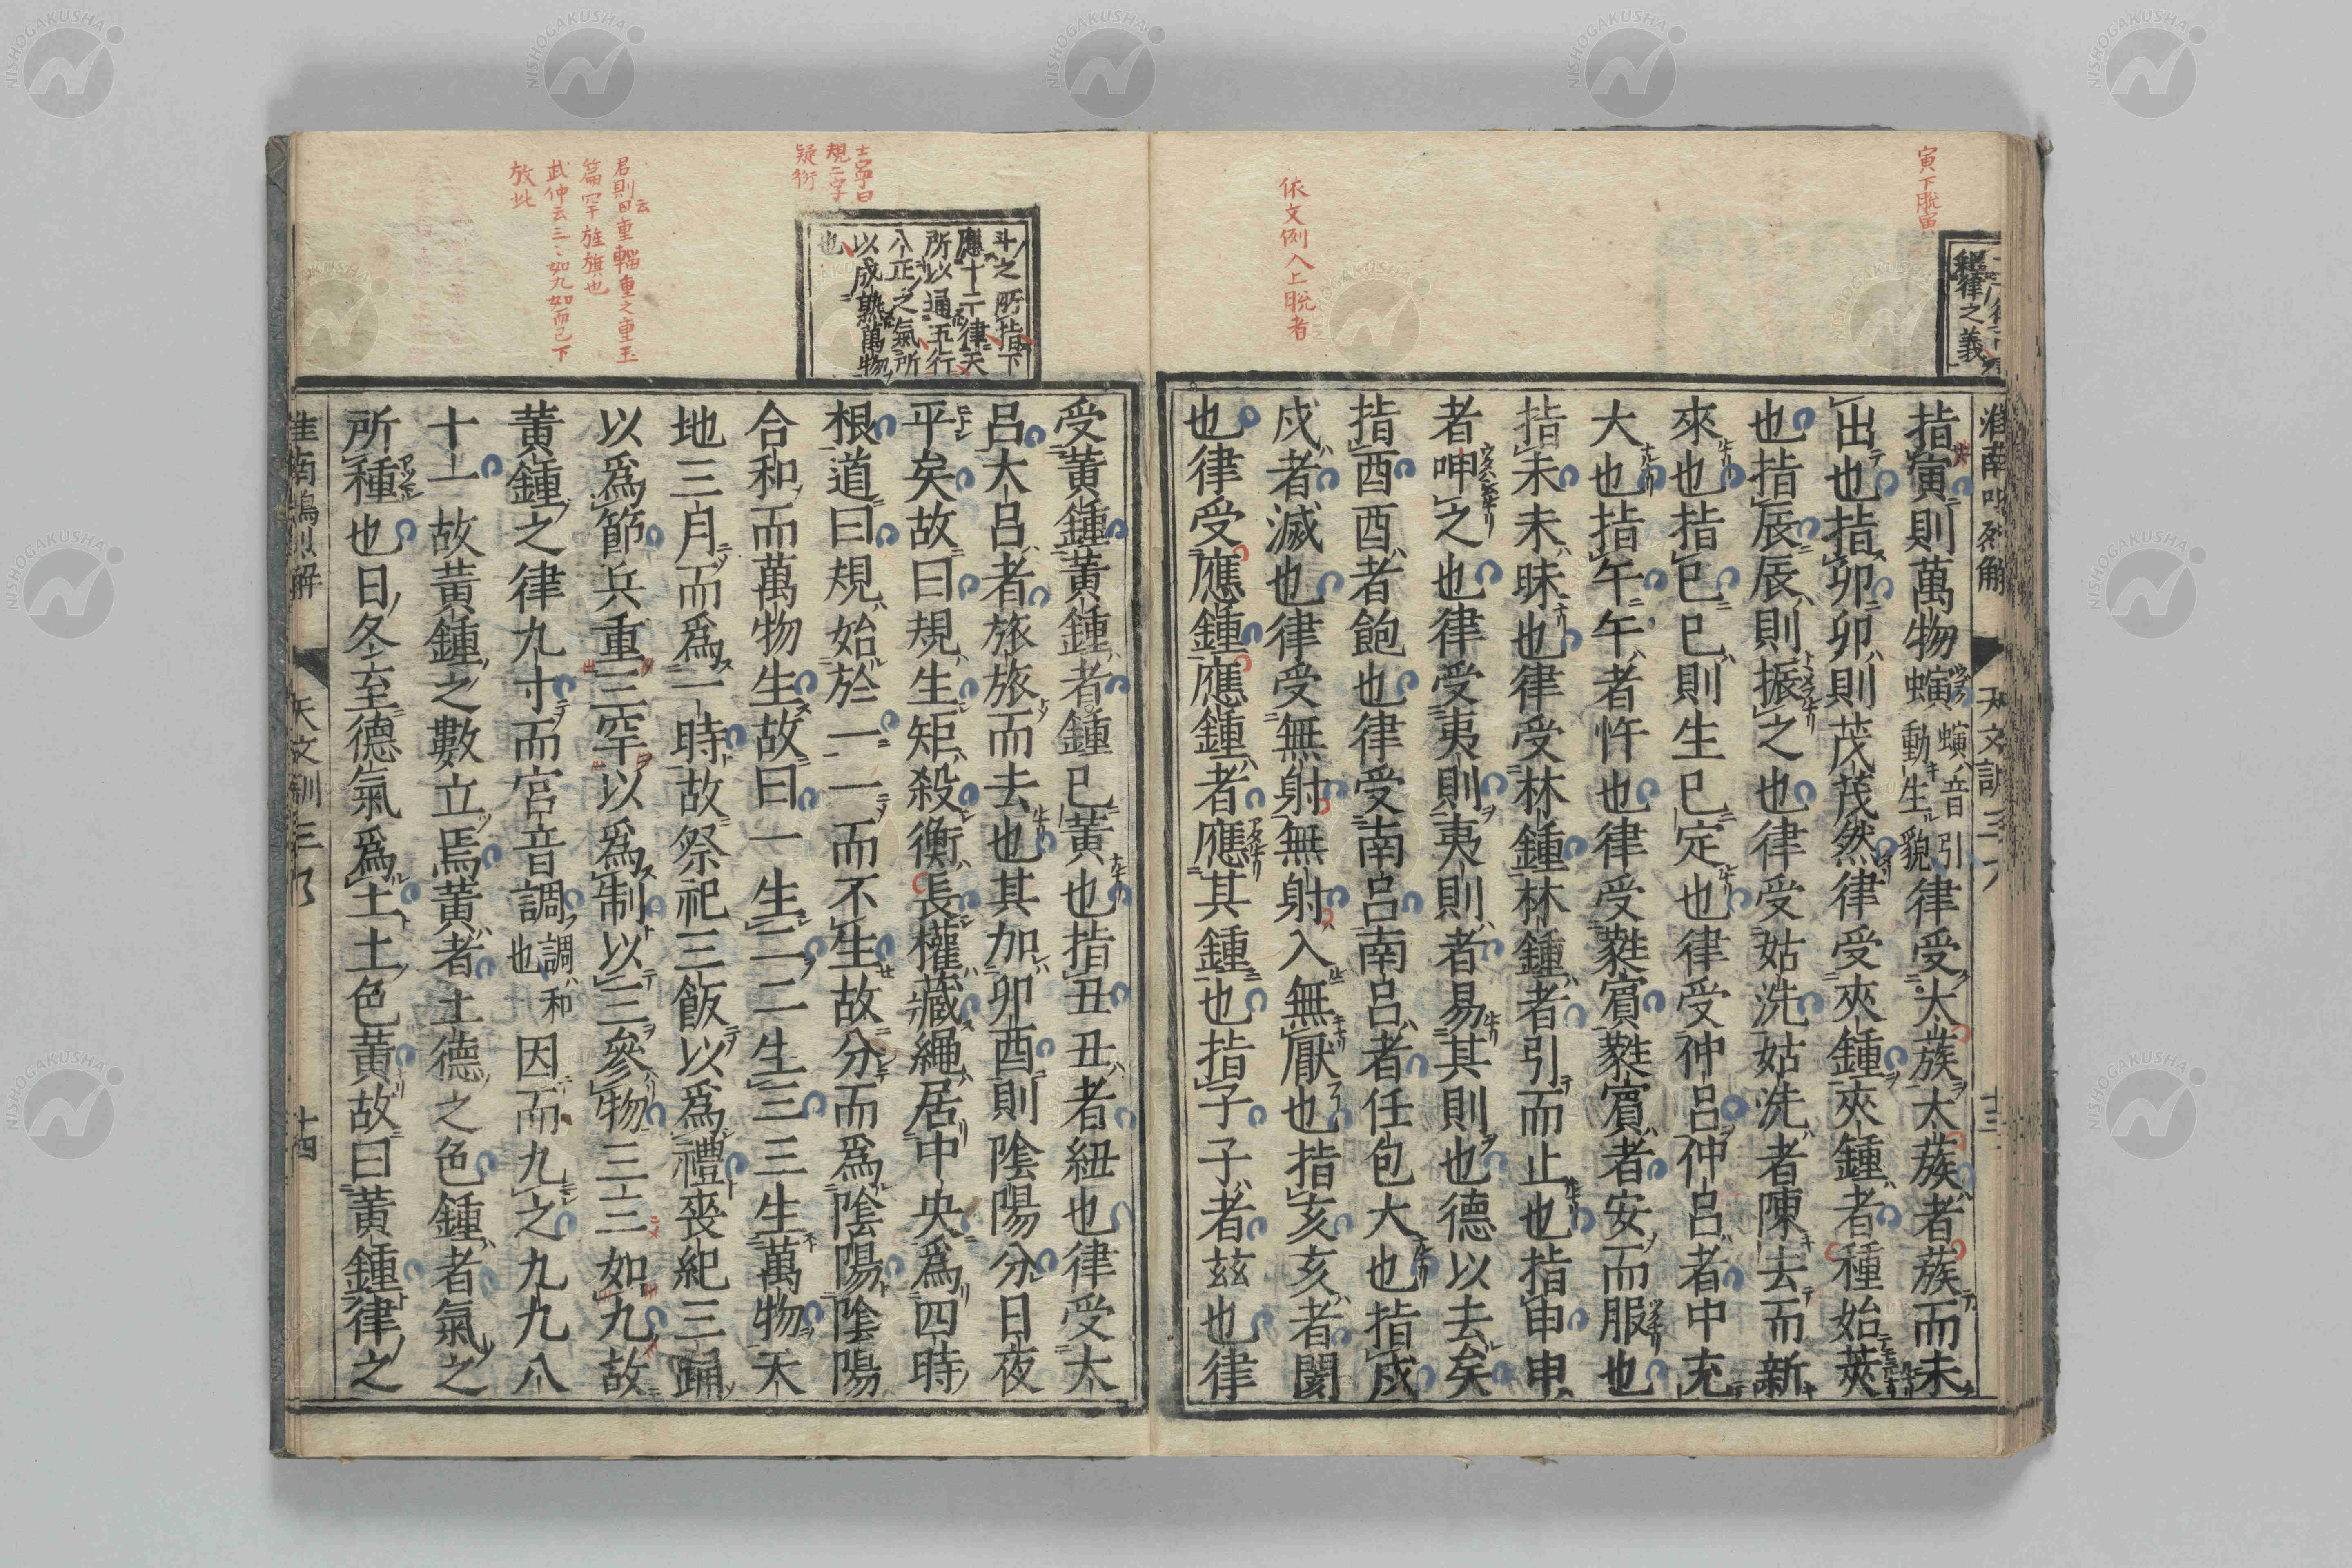 寅下脫寅
釋律之義
淮南鴻烈解
天文訓三
十三
指寅則萬物螾螾音引動生貌律受太蔟太蔟者蔟而未
出也指卯卯則茂茂然律受夾鍾夾鍾者種始莢
也指辰辰則振之也律受姑洗姑洗者陳去而新
來也指巳巳則生巳定也律受仲呂仲呂者中充
大也指午午者忤也律受蕤賓蕤賓者安而服也
指未未昧也律受林鍾林鍾者引而止也指申申
者呻之也律受夷則夷則者易其則也德以去矣
指酉酉者飽也律受南呂南呂者任包大也指戌
戌者滅也律受無射無射入無厭也指亥亥者閡
也律受應鍾應鍾者應其鍾也指子子者茲也律
依文例入上脫者
斗之所指下
應十二律天
所以通五行
八正之氣所
以成熟萬物
也
士寧曰
規二字
疑衍
受黃鍾黃鍾者鍾已黃也指丑丑者紐也律受大
呂大呂者旅旅而去也其加卯酉則陰陽分日夜
平矣故曰規生矩殺衡長權藏繩居中央爲四時
根道曰規始於一一而不生故分而爲陰陽陰陽
合和而萬物生故曰一生二二生三三生萬物天
地三月而爲一時故祭祀三飯以爲禮喪紀三踊
以爲節兵重三罕以爲制以三參物三三如九故
黃鍾之律九寸而宮音調調和也因而九之九九八
十一故黃鍾之數立焉黃者土德之色鍾者氣之
所種也日冬至德氣爲土土色黃故曰黃鍾律之
君則云曰重輜重之重玉
篇罕旌旗也
武仲云三三如九如而已下
放此
淮南鴻烈解
天文訓三
十四